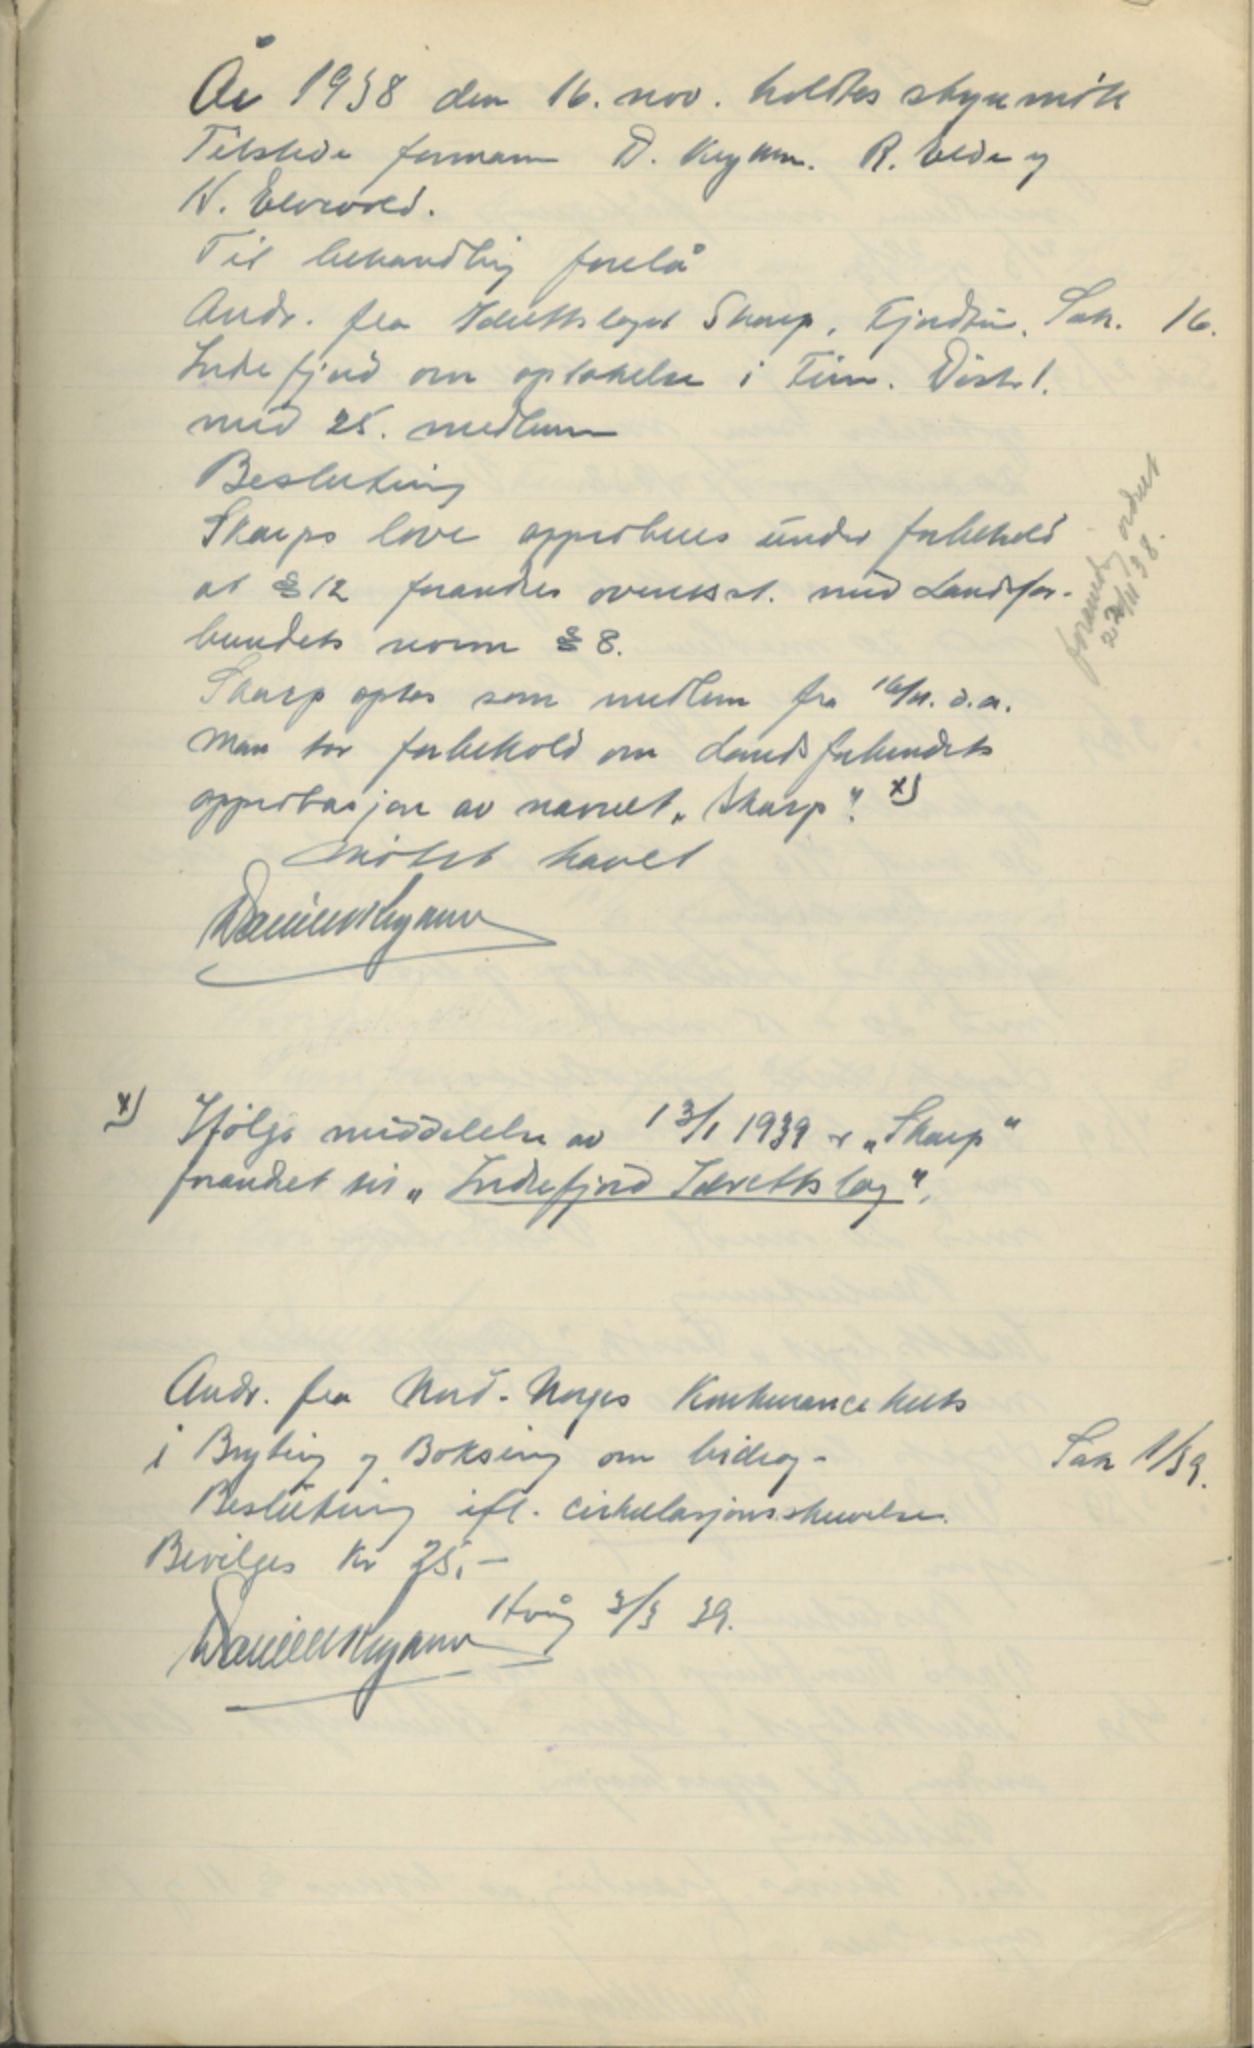 År 1938 den 16. nov. holdtes styremöte
Tilstede formann D. Nymann. R. Elde og
N. Elvevold.
Til behandling forelå
Andr. fra Idrettslaget Skarp, Fjordtun, Sak. 16.
Indrefjord om optakelse i Finn. Distr.
med 25. medlemmer
Beslutning
Skarps love approberes under forbehold
at § 12 forandres overensst. med Landsfor-
bundets norm § 8.
forandring ordnet
22/11 38.
Skarp optas som medlem fra 16/11. d.a.
Man tar forbehold om Landsforbundets
approbasjon av navnet „Skarp“. x)
Møtet hevet
x) Ifølge meddelelse av 13/1 1939 er „Skarp“
forandret til „Indrefjord Idrettslag“.
Andr. fra Nord-Norges Konkurancekrets
i Bryting og Boksing om bidrag- Sak 1/39.
Beslutning ifl. cirkulasjonsskrivelse.
Bevilges Kr 25,-
3/3 39.